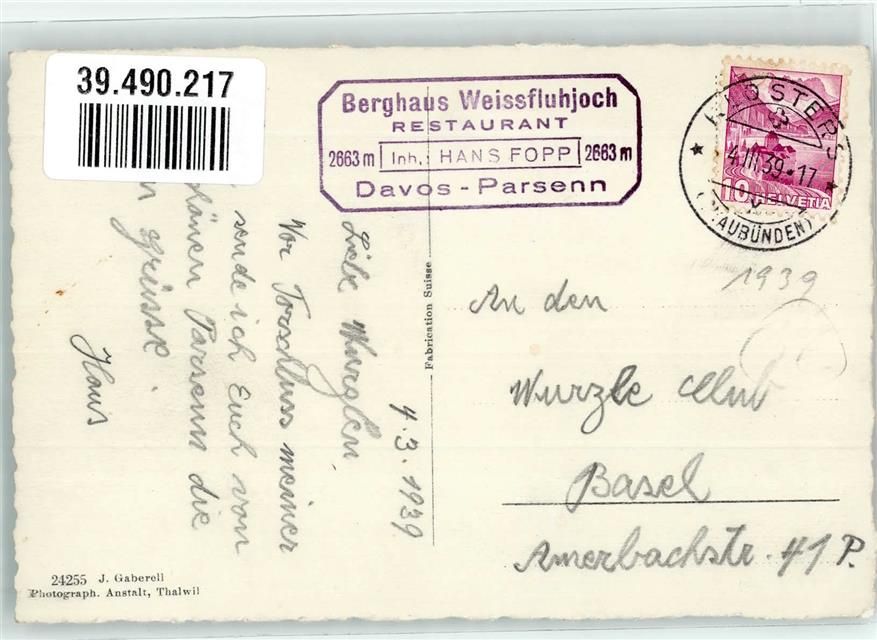 39.490.217
Berghaus Weissfluhjoch
RESTAURANT
2663 m Inh. HANS FOPP 2663 m
Davos - Parsenn
KLOSTERS
4.III.39.-17
(GRAUBÜNDEN)
10 HELVETIA
1939
4.3.1939
Liebe Wurzlen
Vor Torschluss meiner
sende ich Euch von
schönen Parsenn die
grüsse.
Hans
Fabrication Suisse
An den
Wurzle Club
Basel
Amerbachstr. 41 P.
24255 J. Gaberell
Photograph. Anstalt, Thalwil